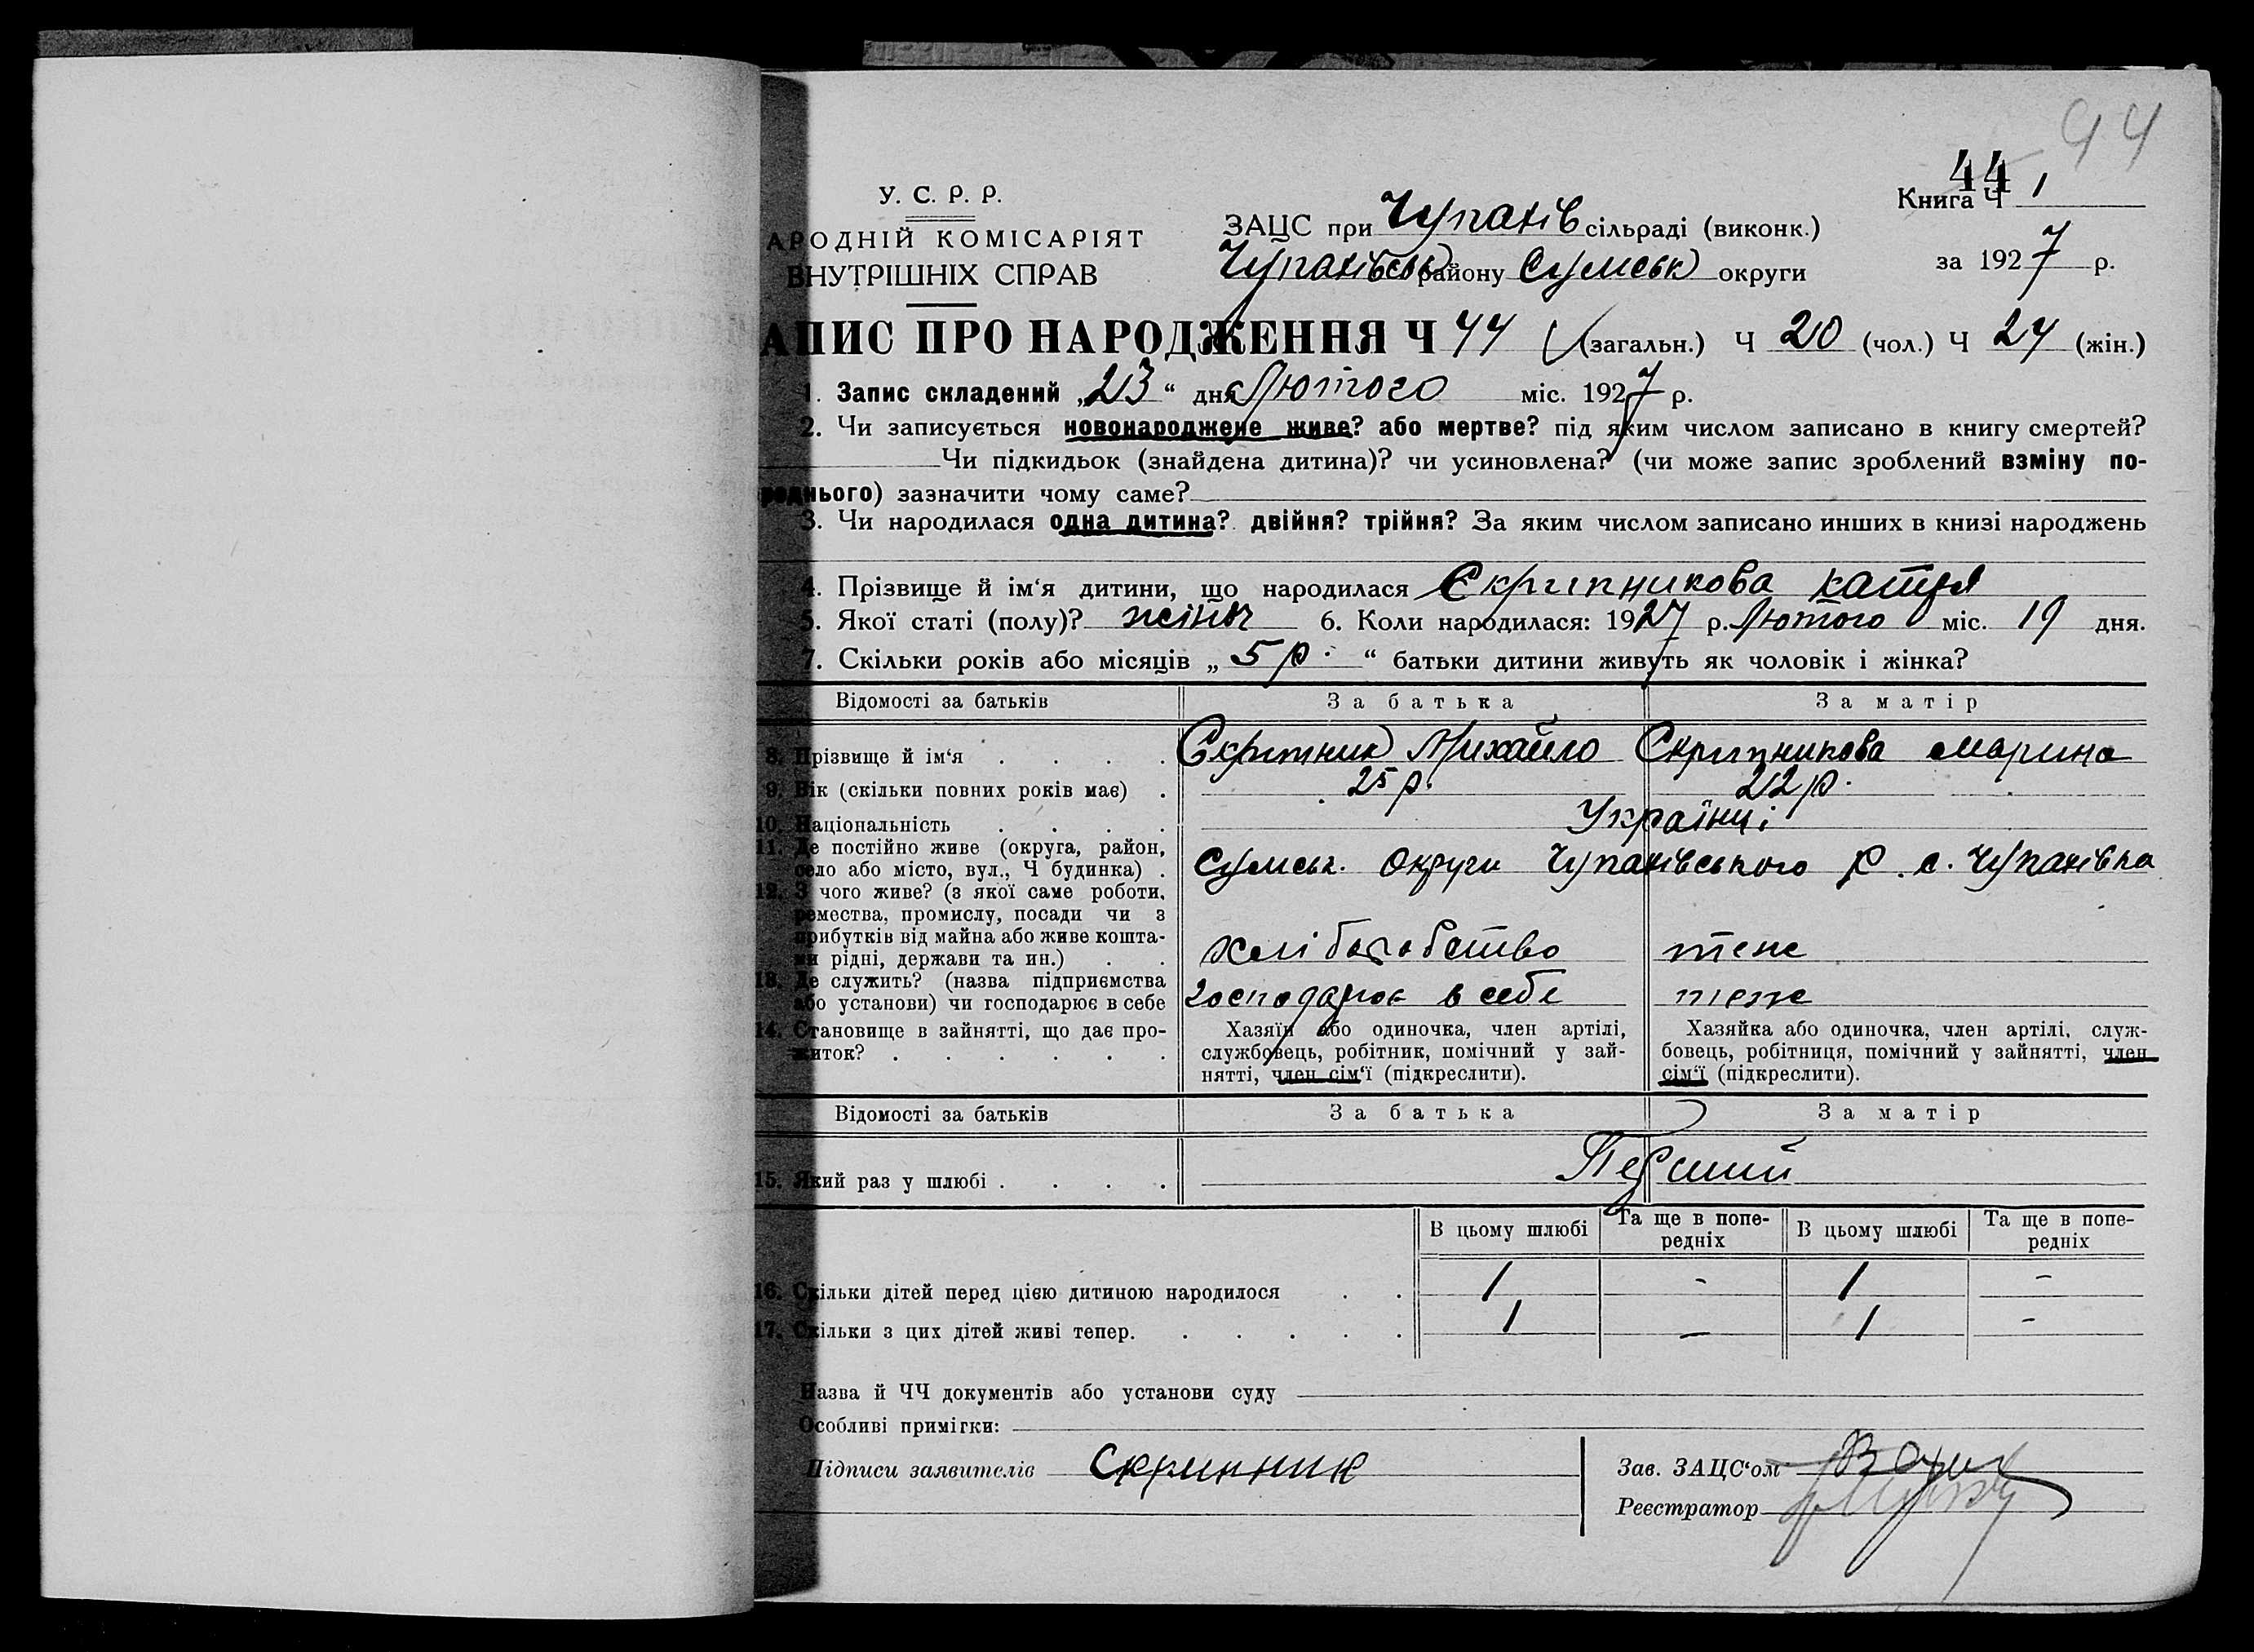 44
44
Книга Ч 1
У. С. Р. Р.
АРОДНІЙ КОМІСАРІЯТ
ВНУТРІШНІХ СПРАВ
ЗАЦС при Чупахів сільраді (виконк.)
Чупахівськ району Сумськ округи
за 1927 р.
АПИС ПРО НАРОДЖЕННЯ Ч 44 (загальн.) Ч 20 (чол.) Ч 24 (жін.)
1. Запис складений „23“ дня Лютого міс. 1927 р.
2. Чи записується новонароджене живе? або мертве? під яким числом записано в книгу смертей?
Чи підкидьок (знайдена дитина)? чи усиновлена? (чи може запис зроблений взміну по-
реднього) зазначити чому саме?
3. Чи народилася одна дитина? двійня? трійня? За яким числом записано инших в книзі народжень
4. Прізвище й ім‘я дитини, що народилася Скрипникова Катря
5. Якої статі (полу)? жіноч 6. Коли народилася: 1927 р. Лютого міс. 19 дня.
7. Скільки років або місяців „5 р.“ батьки дитини живуть як чоловік і жінка?
Відомості за батьків За батька За матір
8. Прізвище й ім‘я . . . . Скрипник Михайло Скрипникова Марина
9. Вік (скільки повних років має) . 25 р. 22 р.
10. Національність . . . . Українці
11. Де постійно живе (округа, район,
село або місто, вул., Ч будинка) . Сумськ. Округи Чупахівського Р. с. Чупахівка
12. З чого живе? (з якої саме роботи,
ремества, промислу, посади чи з
прибутків від майна або живе кошта-
ми рідні, держави та ин.) . . Хліборобство теж
13. Де служить? (назва підприємства
або установи) чи господарює в себе господарює в себе теж
14. Становище в зайнятті, що дає про-
житок? . . . . . .
Хазяїн або одиночка, член артілі,
службовець, робітник, помічний у зай-
нятті, член сім‘ї (підкреслити).
Хазяйка або одиночка, член артілі, служ-
бовець, робітниця, помічний у зайнятті, член
сім‘ї (підкреслити).
Відомості за батьків За батька За матір
15. Який раз у шлюбі . . . . Перший
В цьому шлюбі Та ще в попе-
редніх В цьому шлюбі Та ще в попе-
редніх
16. Скільки дітей перед цією дитиною народилося . . 1 - 1 -
17. Скільки з цих дітей живі тепер. . . . . . 1 - 1 -
Назва й ЧЧ документів або установи суду
Особливі примітки:
Підписи заявителів Скрипник
Зав. ЗАЦС‘ом
Реєстратор